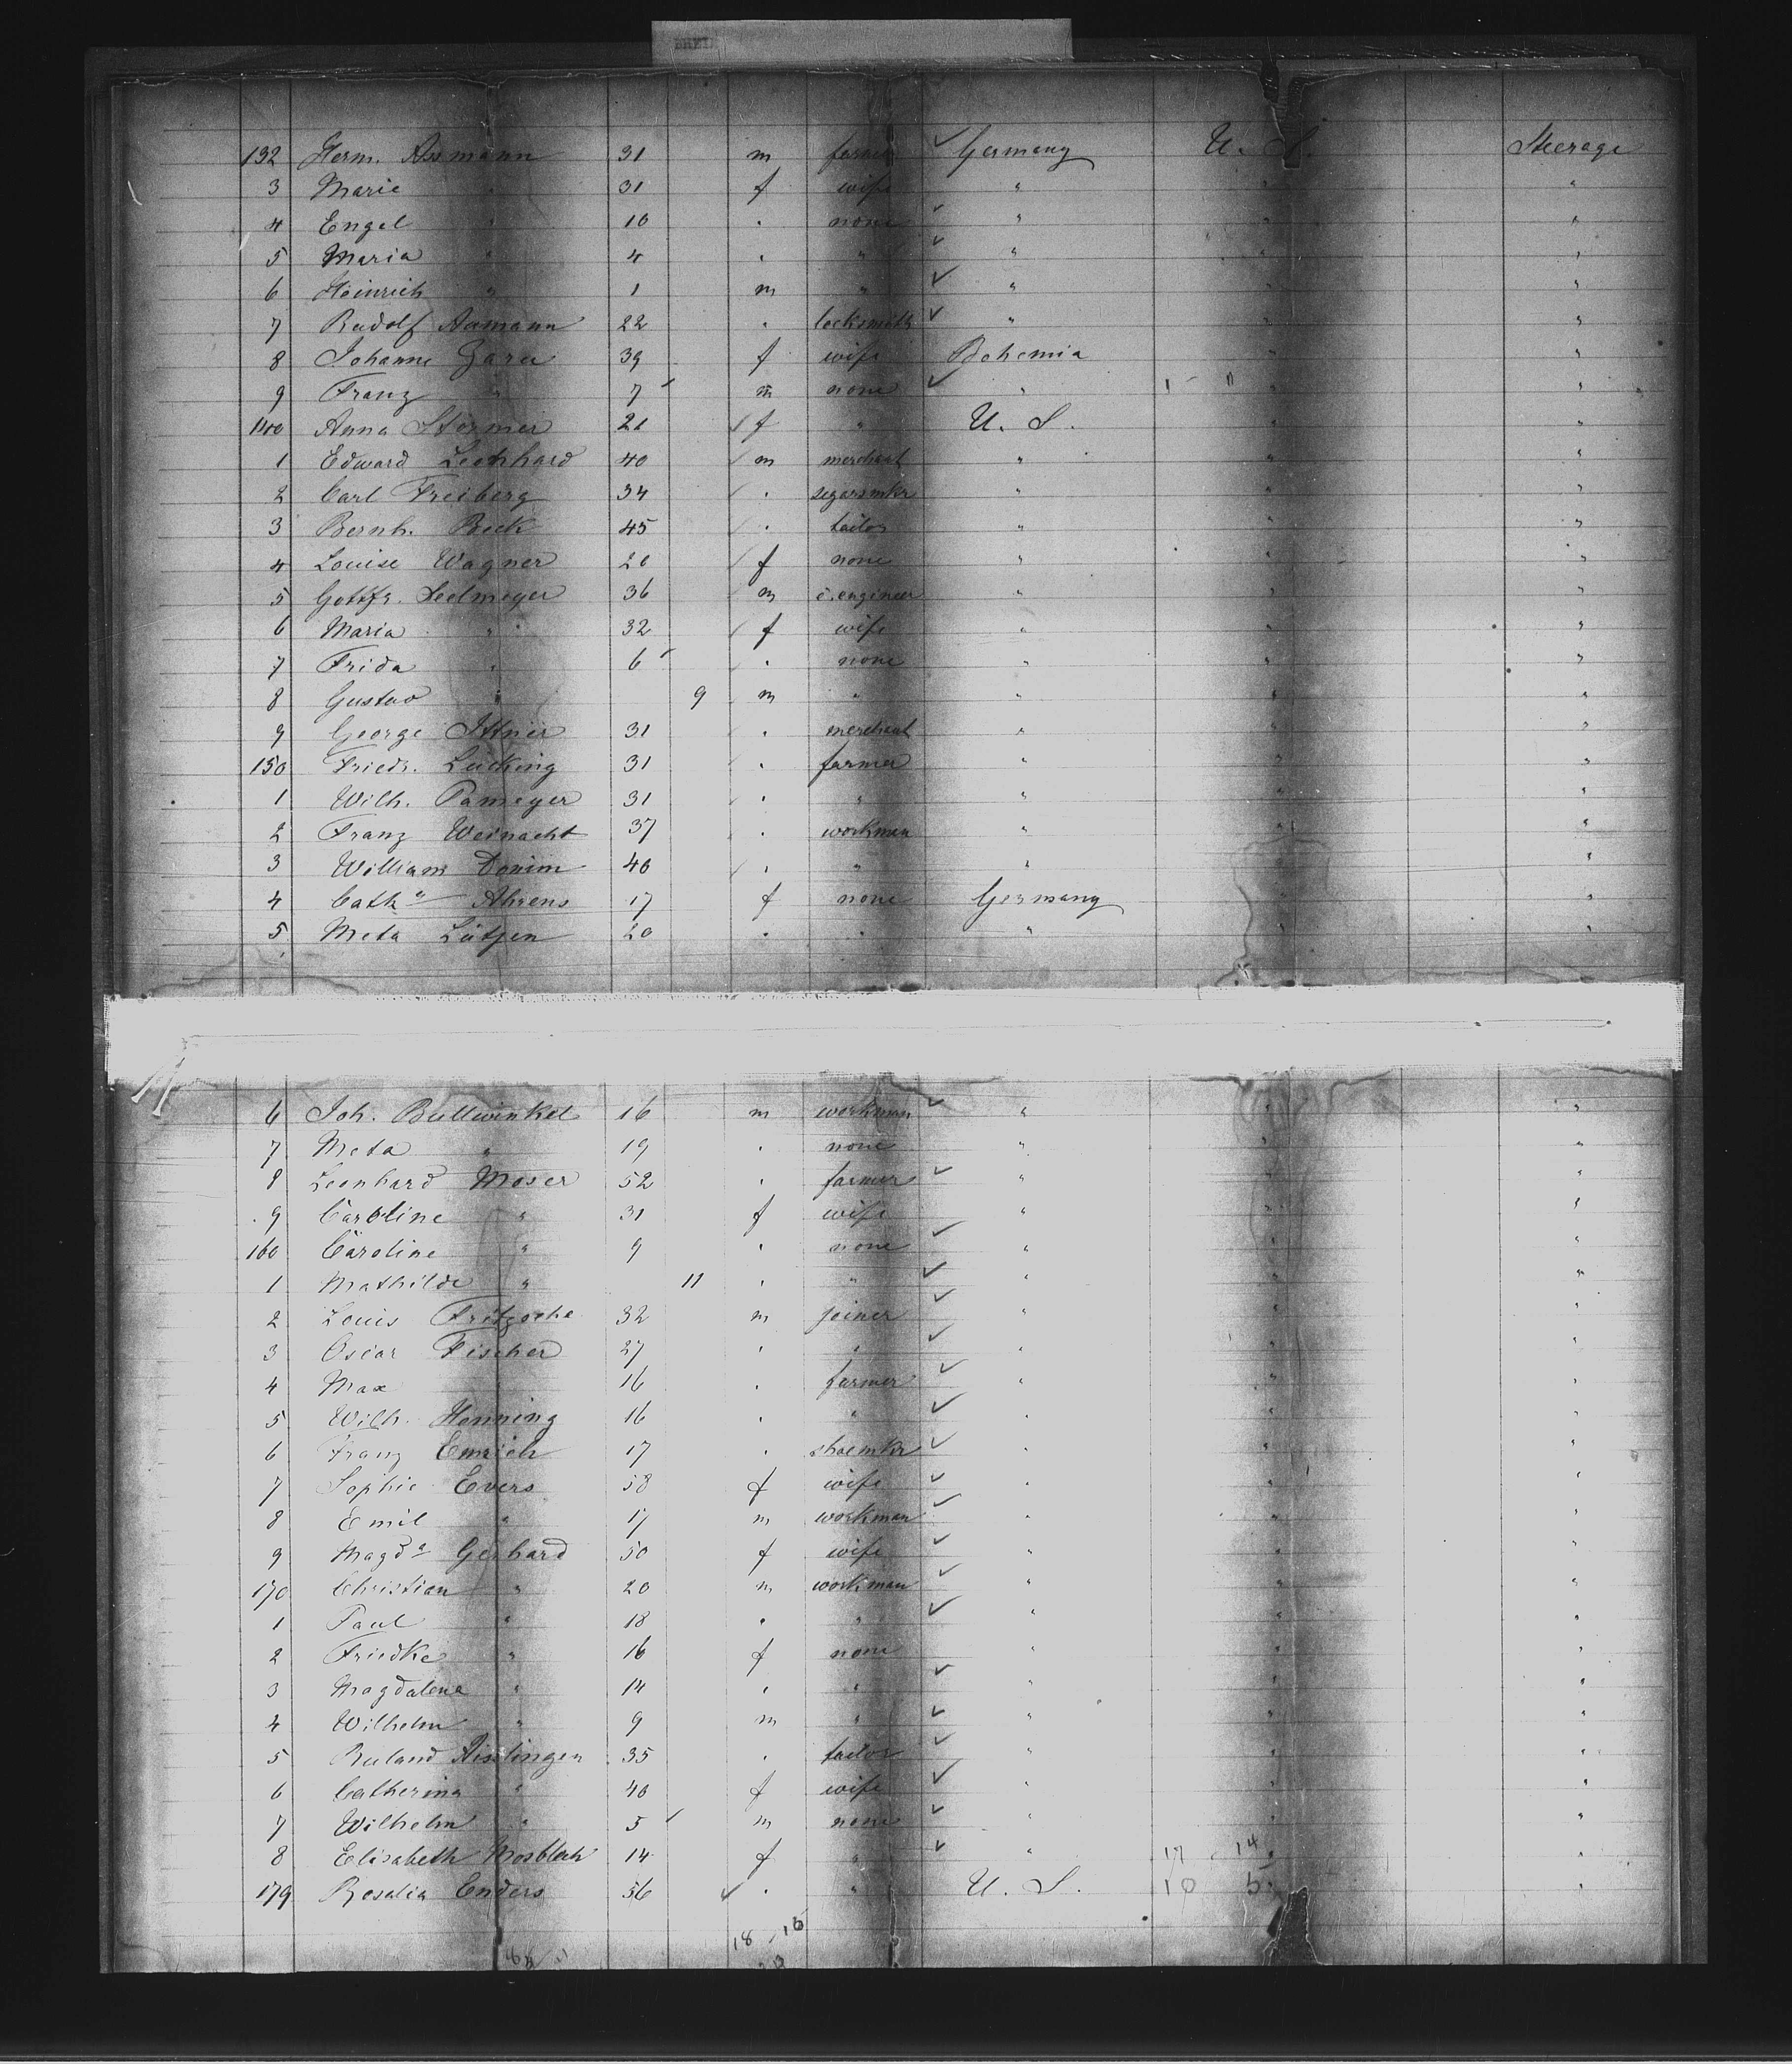 132 Herm. Assmann 31 m farmer ✓ Germany U. S. Steerage
3 Marie " 31 f wife " " "
4 Engel " 10 " none ✓ " " "
5 Maria " 4 " " ✓ " " "
6 Heinrich " 1 m " ✓ " " "
7 Rudolf Assmann 22 " locksmith ✓ " " "
8 Johanne 39 f wife Bohemia " "
9 Franz " 7 m none ✓ " " "
140 Anna Störmer 21 f " U. S. " "
1 Edward Leonhard 40 m merchant " " "
2 Carl Freiberg 34 " segarsmkr " " "
3 Bernh. Beck 45 " tailor " " "
4 Louise Wagner 20 f none " " "
5 Gottfr. Seelmeyer 36 m c. engineer " " "
6 Maria " 32 f wife " " "
7 Frida " 6 " none " " "
8 Gustav " 9 m " " " "
9 George Ittner 31 " merchant " " "
150 Friedr. Lücking 31 " farmer " " "
1 Wilh. Pameyer 31 " " " " "
2 Franz Weinacht 37 " workman " " "
3 William 40 " " " " "
4 Cath.a Ahrens 17 f none Germany " "
5 Meta Lütjen 20 " " " " "
6 Joh. Bullwinkel 16 m workman ✓ " " "
7 Meta " 19 " none " " "
8 Leonhard Moser 52 " farmer ✓ " " "
9 Caroline " 31 f wife " " "
160 Caroline " 9 " none ✓ " " "
1 Mathilde " 11 " " ✓ " " "
2 Louis Fritzsche 32 m joiner ✓ " " "
3 Oscar Fischer 27 " " ✓ " " "
4 Max 16 " farmer ✓ " " "
5 Wilh. Henning 16 " " ✓ " " "
6 Franz Emrich 17 " shoemkr ✓ " " "
7 Sophie Evers 58 f wife ✓ " " "
8 Emil " 17 m workman ✓ " " "
9 Magd.a Gerhard 50 f wife ✓ " " "
170 Christian " 20 m workman ✓ " " "
1 Paul " 18 " " ✓ " " "
2 Friedke " 16 f none " " "
3 Magdalena " 14 " " ✓ " " "
4 Wilhelm " 9 m " ✓ " " "
5 Ruland Aislingen 35 " tailor ✓ " " "
6 Catherina " 40 f wife ✓ " " "
7 Wilhelm " 5 m none ✓ " " "
8 Elisabeth Mosblech 14 f " ✓ " 17 14 " "
179 Rosalia Enders 56 ✓ " " U. S. 10 5 " "
18 16